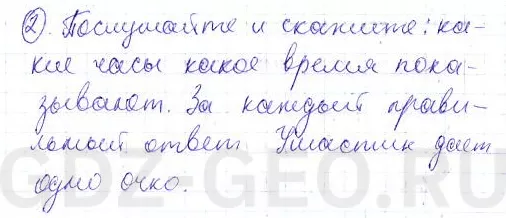 2. Послушайте и скажите: ка-
кие часы какое время пока-
зывают. За каждый прави-
льный ответ Умастик дает
одно очко.
GDZ-GEO.RU